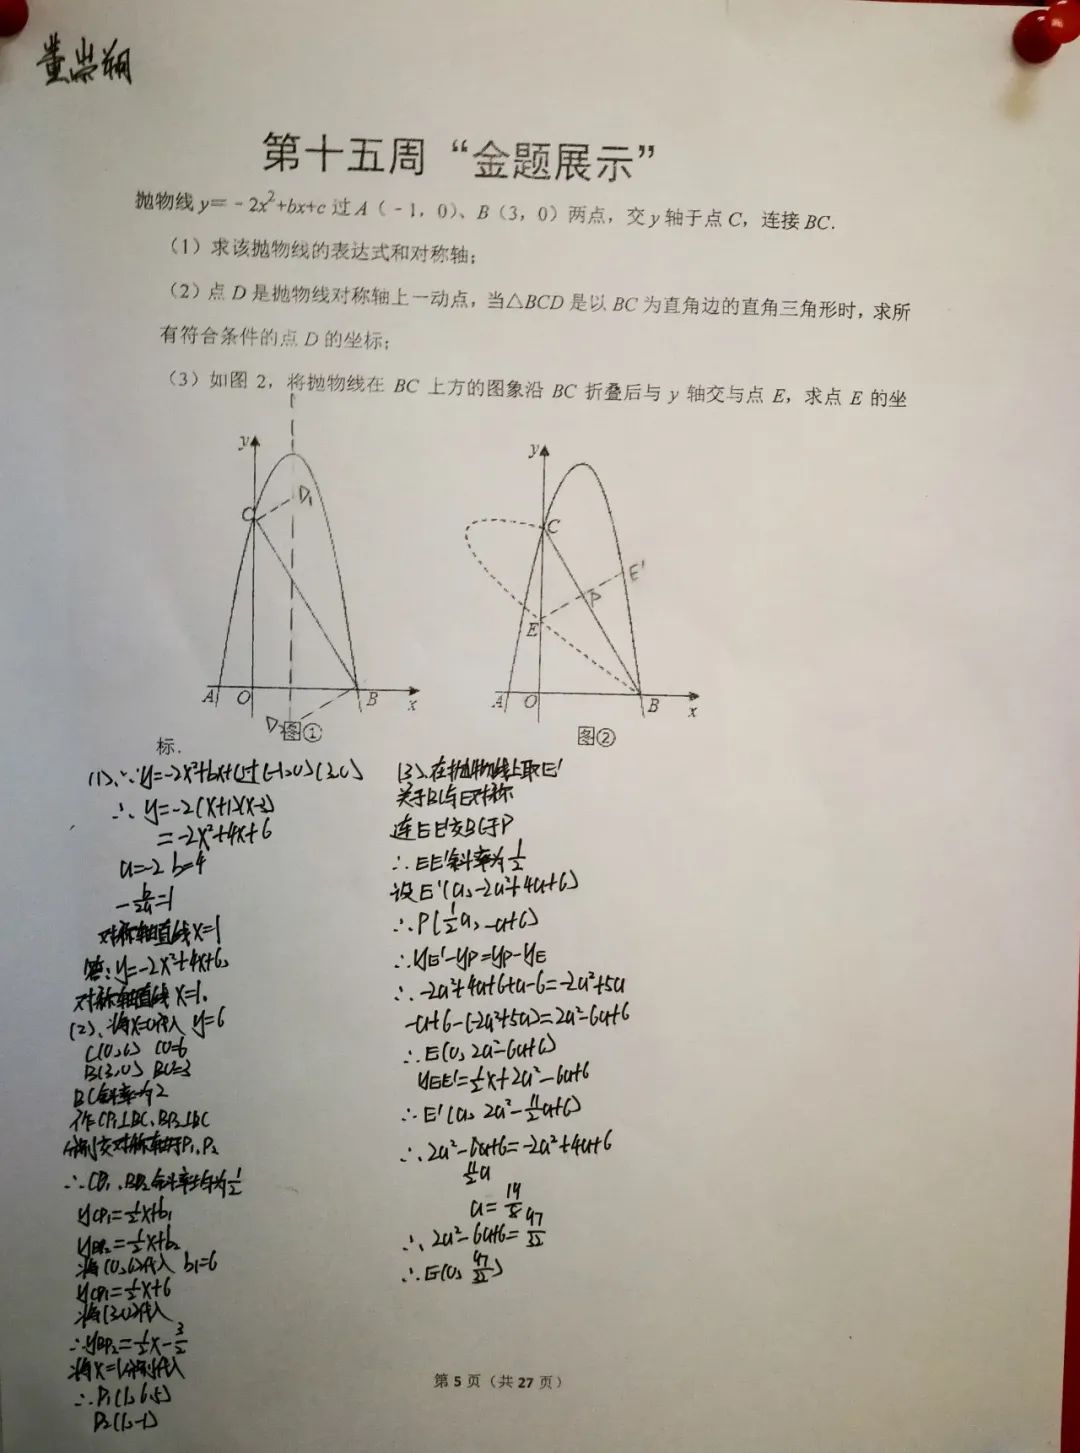 董崇翔
第十五周“金题展示”
抛物线y=-2x²+bx+c过A(-1，0)、B(3，0)两点，交y轴于点C，连接BC.
(1)求该抛物线的表达式和对称轴;
(2)点D是抛物线对称轴上一动点，当△BCD是以BC为直角边的直角三角形时，求所
有符合条件的点D的坐标;
(3)如图2，将抛物线在BC上方的图象沿BC折叠后与y轴交与点E，求点E的坐
y
C
D₁
A
O
B
x
D₂
图①
y
C
E'
P
E
A
O
B
x
图②
标.
(1)∵y=-2x²+bx+c过(-1,0)(3,0)
∴y=-2(x+1)(x-3)
=-2x²+4x+6
a=-2 b=4
-b/2a=1
对称轴直线x=1
答:y=-2x²+4x+6,
对称轴直线x=1.
(2)、将x=0代入 y=6
C(0,6) CO=6
B(3,0) BO=3
BC斜率为2
作CP₁⊥BC,BP₂⊥BC
分别交对称轴于P₁,P₂
∴CP₁,BP₂斜率均为1/2
yCP₁=1/2x+b₁
yBP₂=1/2x+b₂
将(0,6)代入 b₁=6
yCP₁=1/2x+6
将(3,0)代入
∴yBP₂=1/2x-3/2
将x=1分别代入
∴P₁(1,6.5)
P₂(1,-1)
(3)、在抛物线上取E'
关于BC与E对称
连EE'交BC于P
∴EE'斜率为1/2
设E'(a,-2a²+4a+6)
∴P(1/2a,-a+6)
∴yE'-yP=yP-yE
∴-2a²+4a+6+a-6=-2a²+5a
-a+6-(-2a²+5a)=2a²-6a+6
∴E(0,2a²-6a+6)
yEE'=1/2x+2a²-6a+6
∴E'(a,2a²-11/2a+6)
∴2a²-11/2a+6=-2a²+4a+6
a=19/8
∴2a²-6a+6=97/32
∴E(0,97/32)
第5页(共27页)